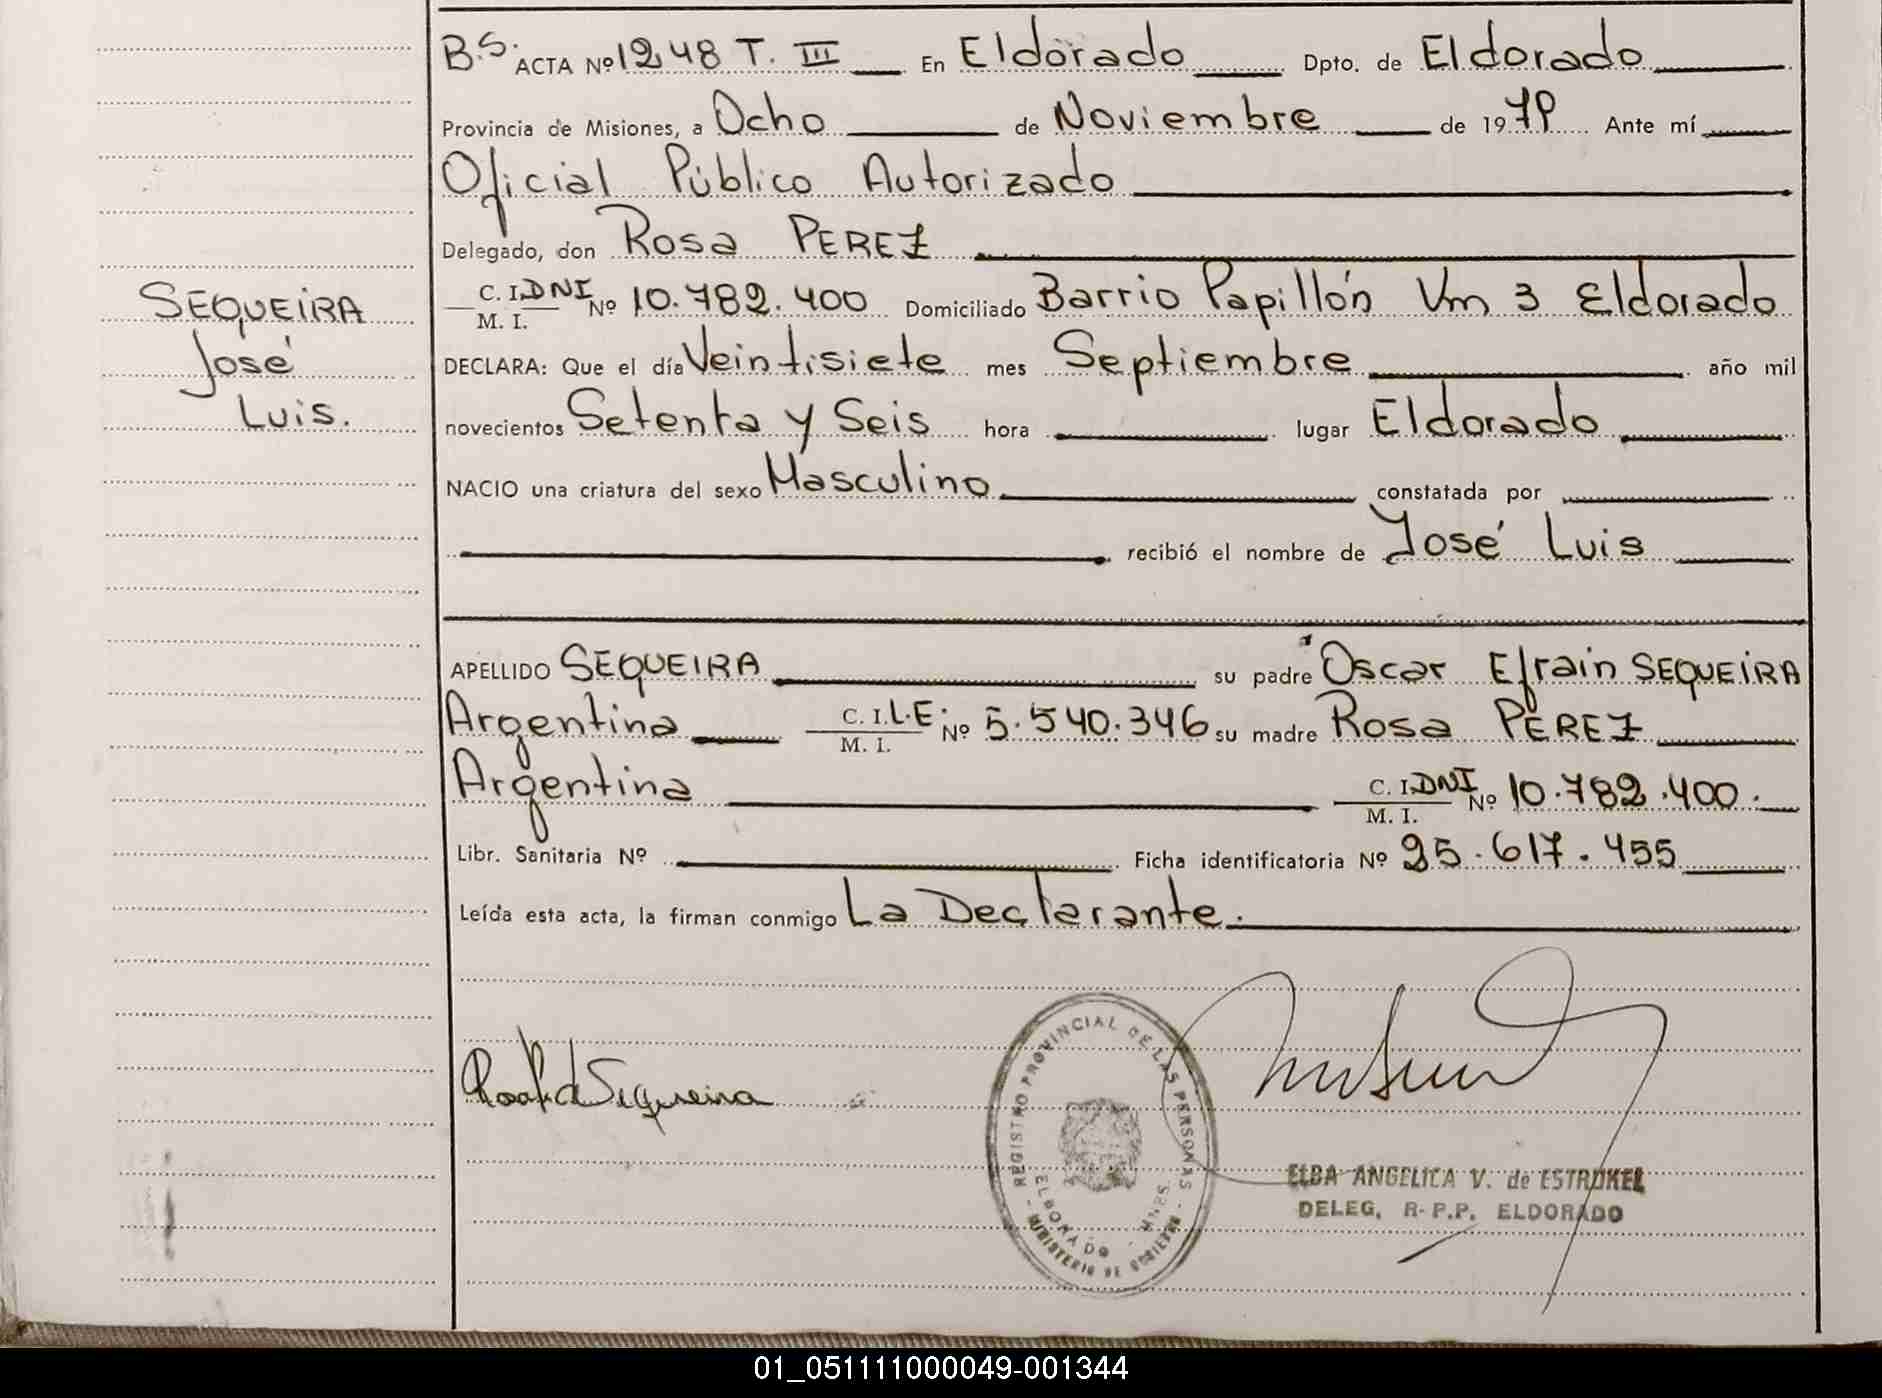 B.S. ACTA Nº 1248 T. III En Eldorado Dpto. de Eldorado
Provincia de Misiones, a Ocho de Noviembre de 1979 Ante mí
Oficial Público Autorizado
Delegado, don Rosa PEREZ
SEQUEIRA
José
Luis.
C. I. DNI Nº 10.782.400 Domiciliado Barrio Papillón Km 3 Eldorado
M. I.
DECLARA: Que el día Veintisiete mes Septiembre año mil
novecientos Setenta y Seis hora lugar Eldorado
NACIO una criatura del sexo Masculino constatada por
recibió el nombre de José Luis
APELLIDO SEQUEIRA su padre Oscar Efrain SEQUEIRA
Argentina C. I. L.E. Nº 5.540.346 su madre Rosa PEREZ
M. I.
Argentina C. I. DNI Nº 10.782.400.
M. I.
Libr. Sanitaria Nº Ficha identificatoria Nº 25.617.455
Leída esta acta, la firman conmigo La Declarante.
de Sequeira
REGISTRO PROVINCIAL DE LAS PERSONAS
ELDORADO - MNES.
MINISTERIO DE GOBIERNO
ELBA ANGELICA V. de ESTRUKEL
DELEG. R.P.P. ELDORADO
01_051111000049-001344